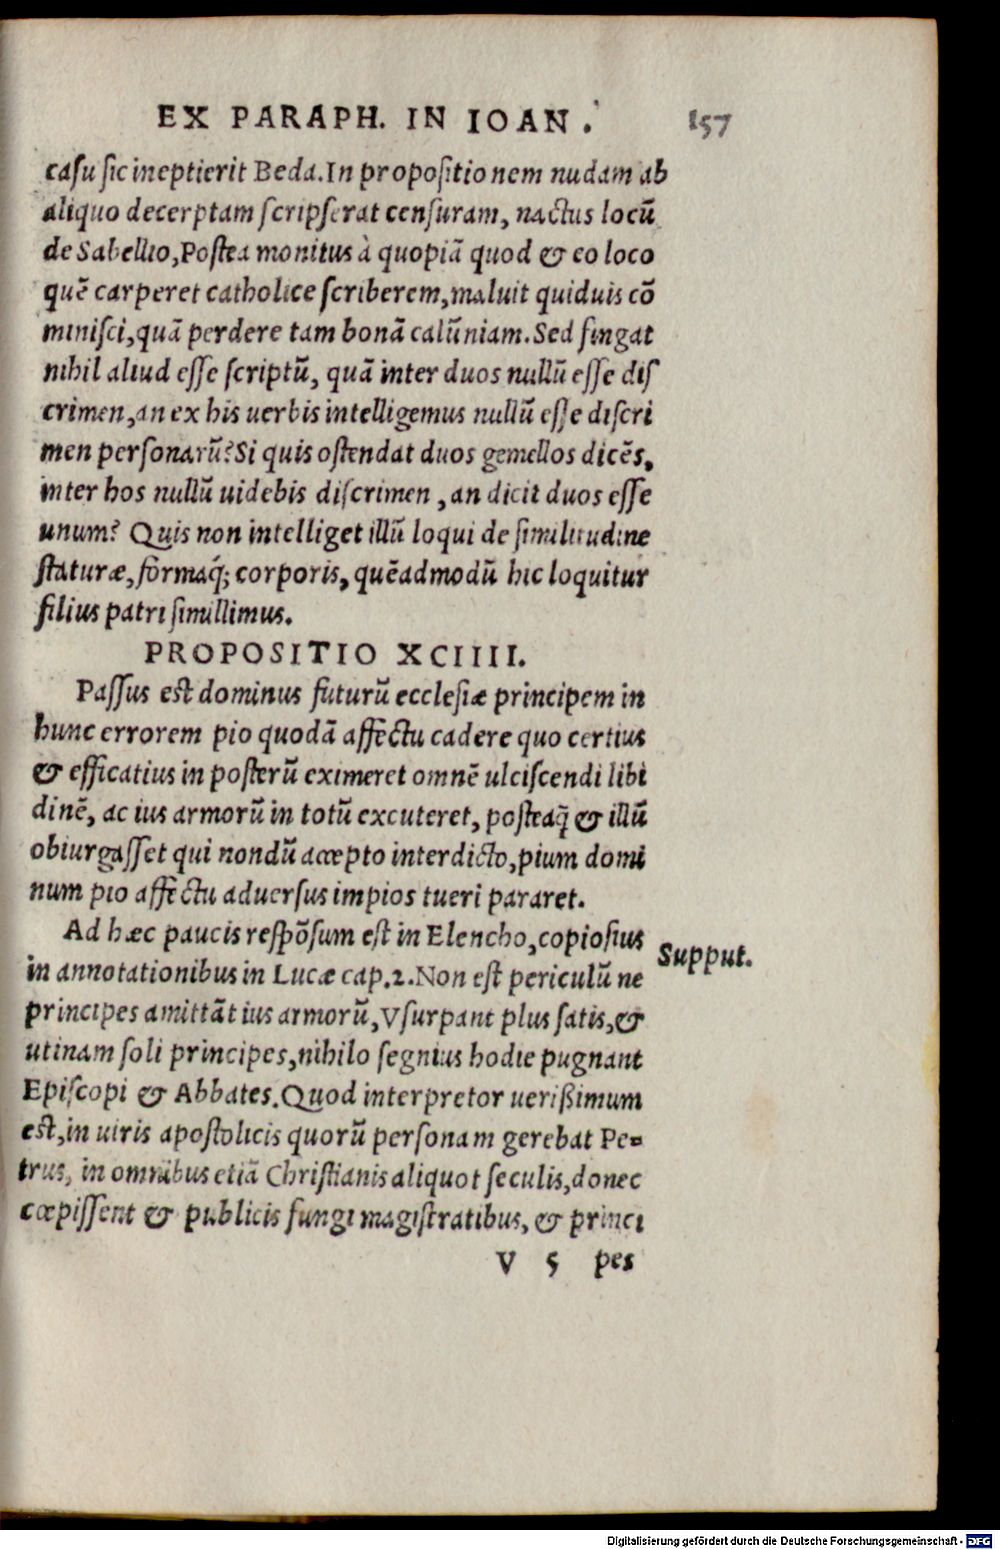 EX PARAPH. IN IOAN. 157
casu sic ineptierit Beda. In propositionem nudam ab
aliquo decerptam scripserat censuram, nactus locū
de Sabellio, Postea monitus à quopiā quod & eo loco
quē carperet catholice scriberem, maluit quiduis cō
minisci, quā perdere tam bonā calūniam. Sed fingat
nihil aliud esse scriptū, quā inter duos nullū esse dis
crimen, an ex his uerbis intelligemus nullū esse discri
men personarū? Si quis ostendat duos gemellos dicēs,
inter hos nullū uidebis discrimen, an dicit duos esse
unum? Quis non intelliget illū loqui de similitudine
staturæ, formaq́; corporis, quēadmodū hic loquitur
filius patri simillimus.
PROPOSITIO XCIIII.
Passus est dominus futurū ecclesiæ principem in
hunc errorem pio quodā affectu cadere quo certius
& efficatius in posterū eximeret omnē ulciscendi libi
dinē, ac ius armorū in totū excuteret, posteaq̄ & illū
obiurgasset qui nondū accepto interdicto, pium domi
num pio affectu aduersus impios tueri pararet.
Ad hæc paucis respōsum est in Elencho, copiosius
Supput.
in annotationibus in Lucæ cap. 2. Non est periculū ne
principes amittāt ius armorū, Vsurpant plus satis, &
utinam soli principes, nihilo segnius hodie pugnant
Episcopi & Abbates. Quod interpretor uerißimum
est, in uiris apostolicis quorū personam gerebat Pe=
trus, in omnibus etiā Christianis aliquot seculis, donec
cœpissent & publicis fungi magistratibus, & princi
V 5 pes
Digitalisierung gefördert durch die Deutsche Forschungsgemeinschaft - DFG